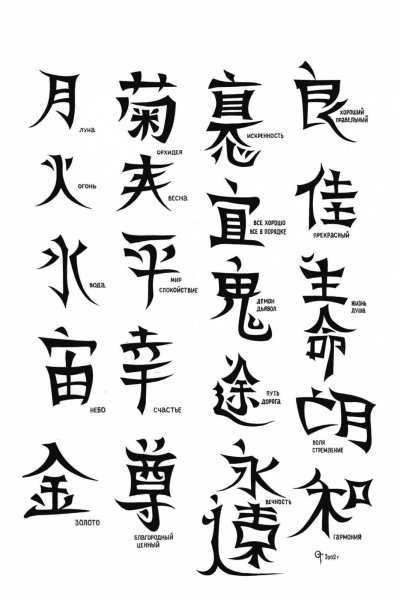 月
ЛУНА
火
ОГОНЬ
水
ВОДА
宙
НЕБО
金
ЗОЛОТО
菊
ОРХИДЕЯ
夫
ВЕСНА
平
МИР
СПОКОЙСТВИЕ
幸
СЧАСТЬЕ
尊
БЛАГОРОДНЫЙ
ЦЕННЫЙ
ИСКРЕННОСТЬ
宜
ВСЕ ХОРОШО
ВСЕ В ПОРЯДКЕ
鬼
ДЕМОН
ДЬЯВОЛ
途
ПУТЬ
ДОРОГА
永
遠
ВЕЧНОСТЬ
良
ХОРОШИЙ
ПРАВЕЛЬНЫЙ
佳
ПРЕКРАСНЫЙ
生
命
ЖИЗНЬ
ДУША
ВОЛЯ
СТРЕМЛЕНИЕ
和
ГАРМОНИЯ